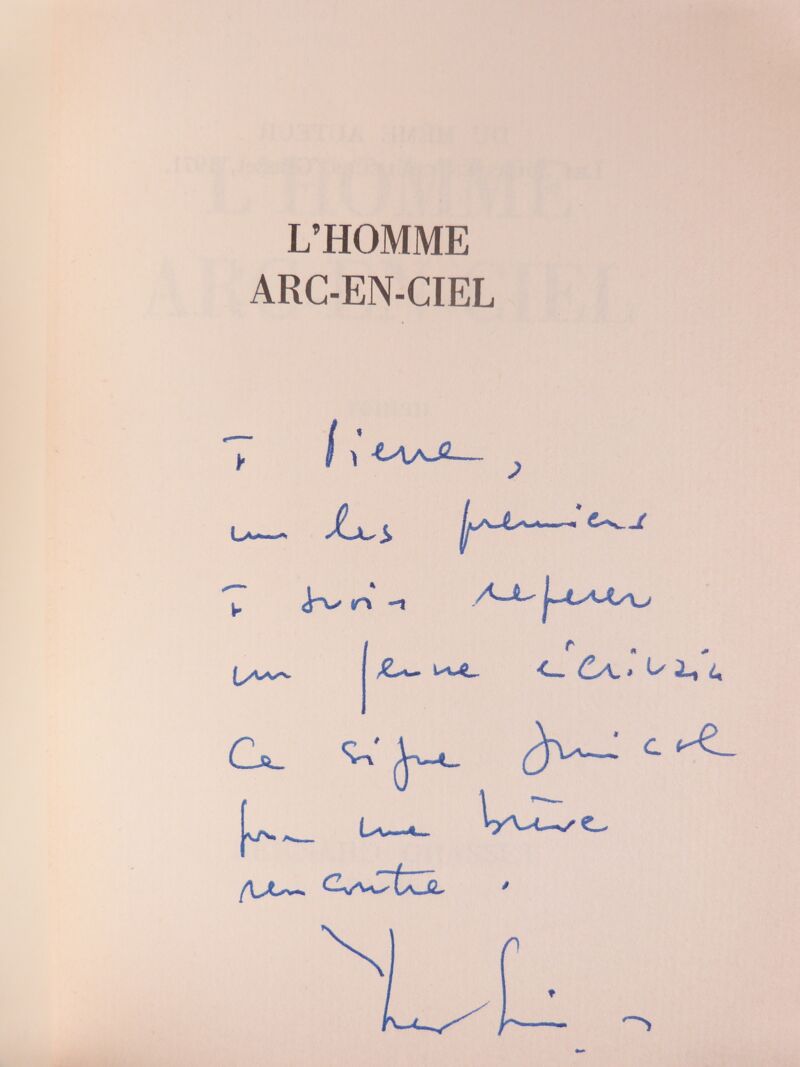 L'HOMME
ARC-EN-CIEL
à Pierre,
un des premiers
à avoir repéré
un jeune écrivain
Ce signe amical
pour une brève
rencontre.